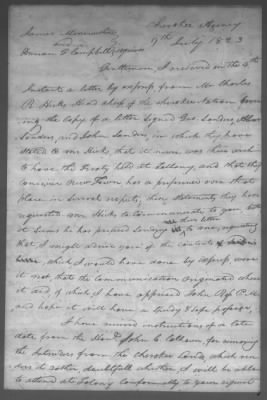 Cherokee Agency
James Meriwether 9th July 1823
and
Duncan G Campbell Esquires
Gentlemen, I received on the 4th
Instant a letter by express from Mr Charles
R. Hicks Head chief of the cherokee nation cover
ing the Copy of a letter Signed Geo. Sanders,
Sanders, and John Sanders, in which they have
stated to Mr Hicks, that it never was their wish
to have the Treaty held at Tallony, and that they
conceive New Town has a preference over that
place in Several respects, their statements they have
requested Mr Hicks to Communicate to you
it Seems he has prefered Sending to me, requesting
that I might advise you of the contents of
letter, which I would have done by express, were
it not that the communication originated where
it did of which I have apprised John Ross P.M.
and hope it will have a speedy & safe passage.
I have received instructions of a late
date from the Honl. John C Calhoun, for removing
the Intruders from the Cherokee Lands, which ren
ders it rather doubtfull whether I will be able
to attend at Tallony conformably to your request